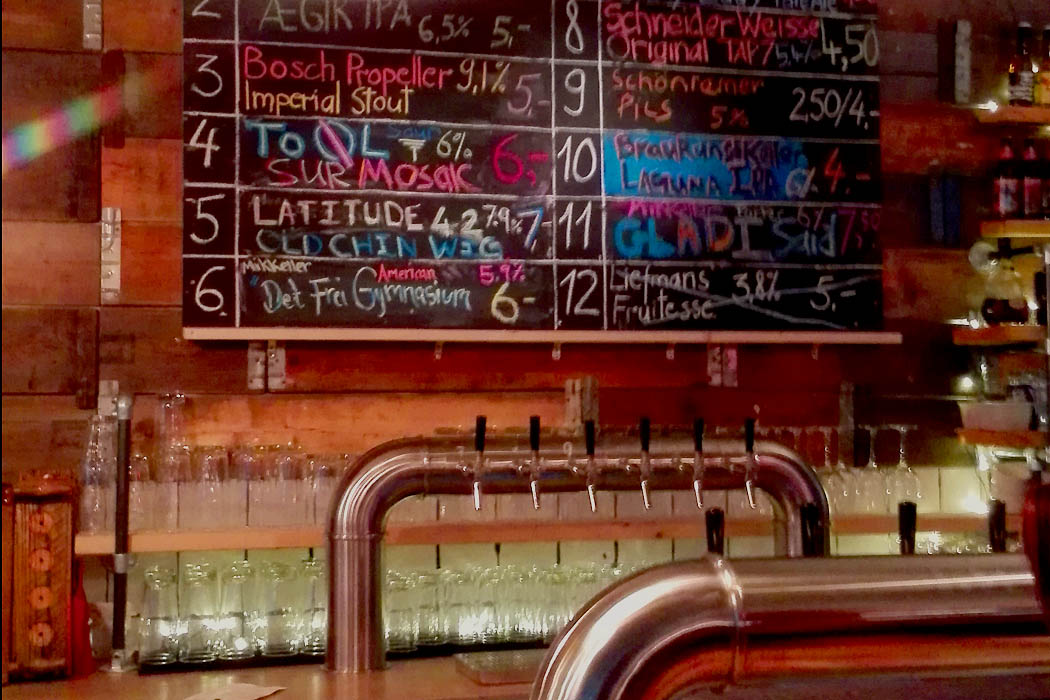 2 ÆGIR IPA 6,5% 5,-
3 Bosch Propeller 9,1%
Imperial Stout 5,-
4 To ØL Sour 6%
SUR MOSAIC 6,-
5 LATITUDE 42 7.9% 7,-
OLD CHIN WIG
6 Mikkeller American 5.9%
"Det Frei Gymnasium 6-
8 Schneider Weisse
Original TAP7 5,4% 4,50
9 Schönramer
Pils 5% 250/4,-
10 LAGUNA IPA 6% 4.-
11 6% 7,50
GLADI
12 Liefmans 3,8% 5,-
Fruitesse